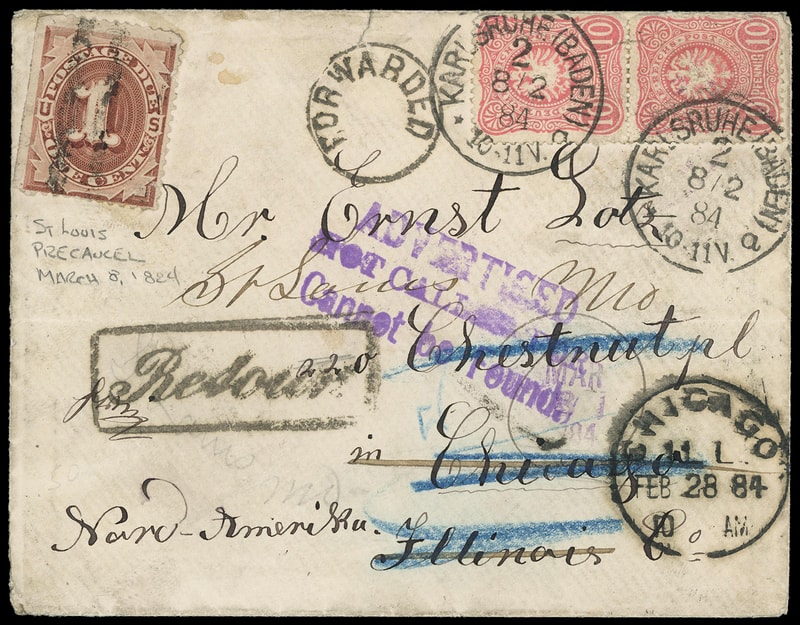 POSTAGE DUE
1
ONE CENT
FORWARDED
KARLSRUHE (BADEN)
2
8/2
84
10-11N.
a
10
10
KARLSRUHE (BADEN)
2
8/2
84
10-11N.
a
Mr. Ernst Lotz
St Louis
PRECANCEL
MARCH 8, 1884
St Louis Mo
ADVERTISED
NOT CALLED
Cannot be found.
Retour
220 Chestnut pl
MAR
in Chicago
CHICAGO
ILL.
FEB 28 84
10 AM
Nord-Amerika.
Illinois Co